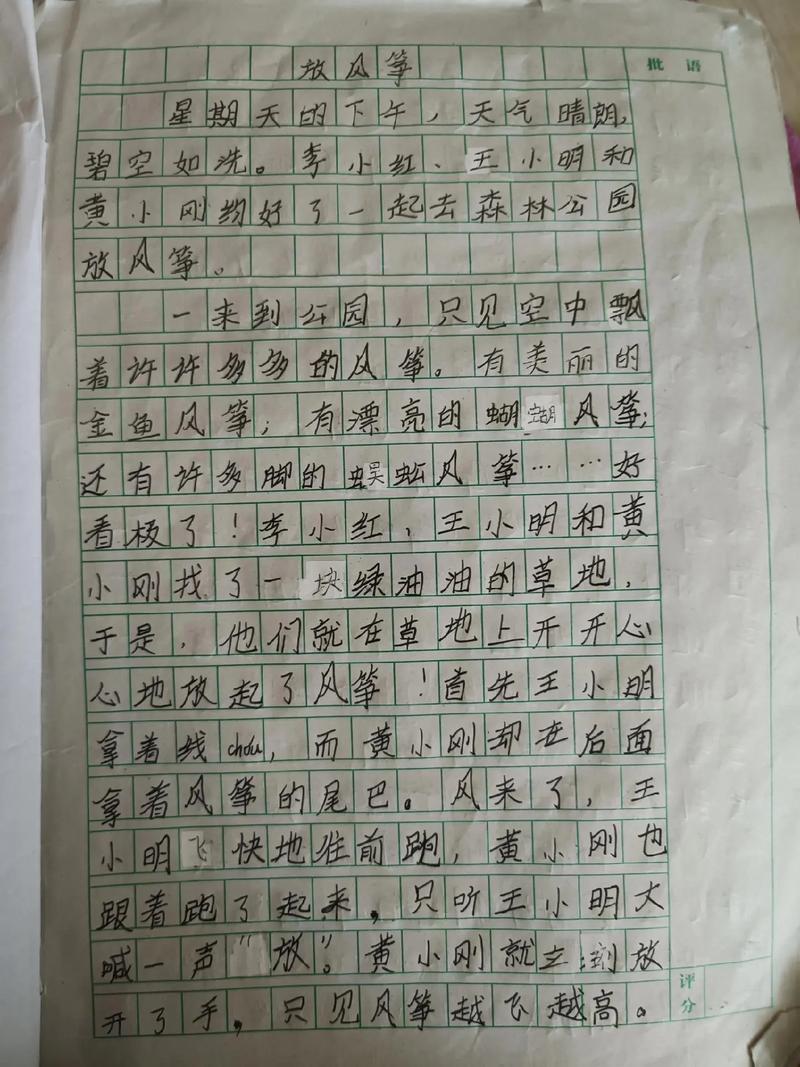 放风筝
批语
星期天的下午，天气晴朗，
碧空如洗。李小红、王小明和
黄小刚约好了一起去森林公园
放风筝。
一来到公园，只见空中飘
着许许多多的风筝。有美丽的
金鱼风筝；有漂亮的蝴蝴风筝；
还有许多脚的蜈蚣风筝……好
看极了！李小红、王小明和黄
小刚找了一块绿油油的草地，
于是，他们就在草地上开开心
心地放起了风筝！首先王小明
拿着线chou，而黄小刚却在后面
拿着风筝的尾巴。风来了，王
小明飞快地往前跑，黄小刚也
跟着跑了起来，只听王小明大
喊一声“放”。黄小刚就立刻放
开了手，只见风筝越飞越高。
评分